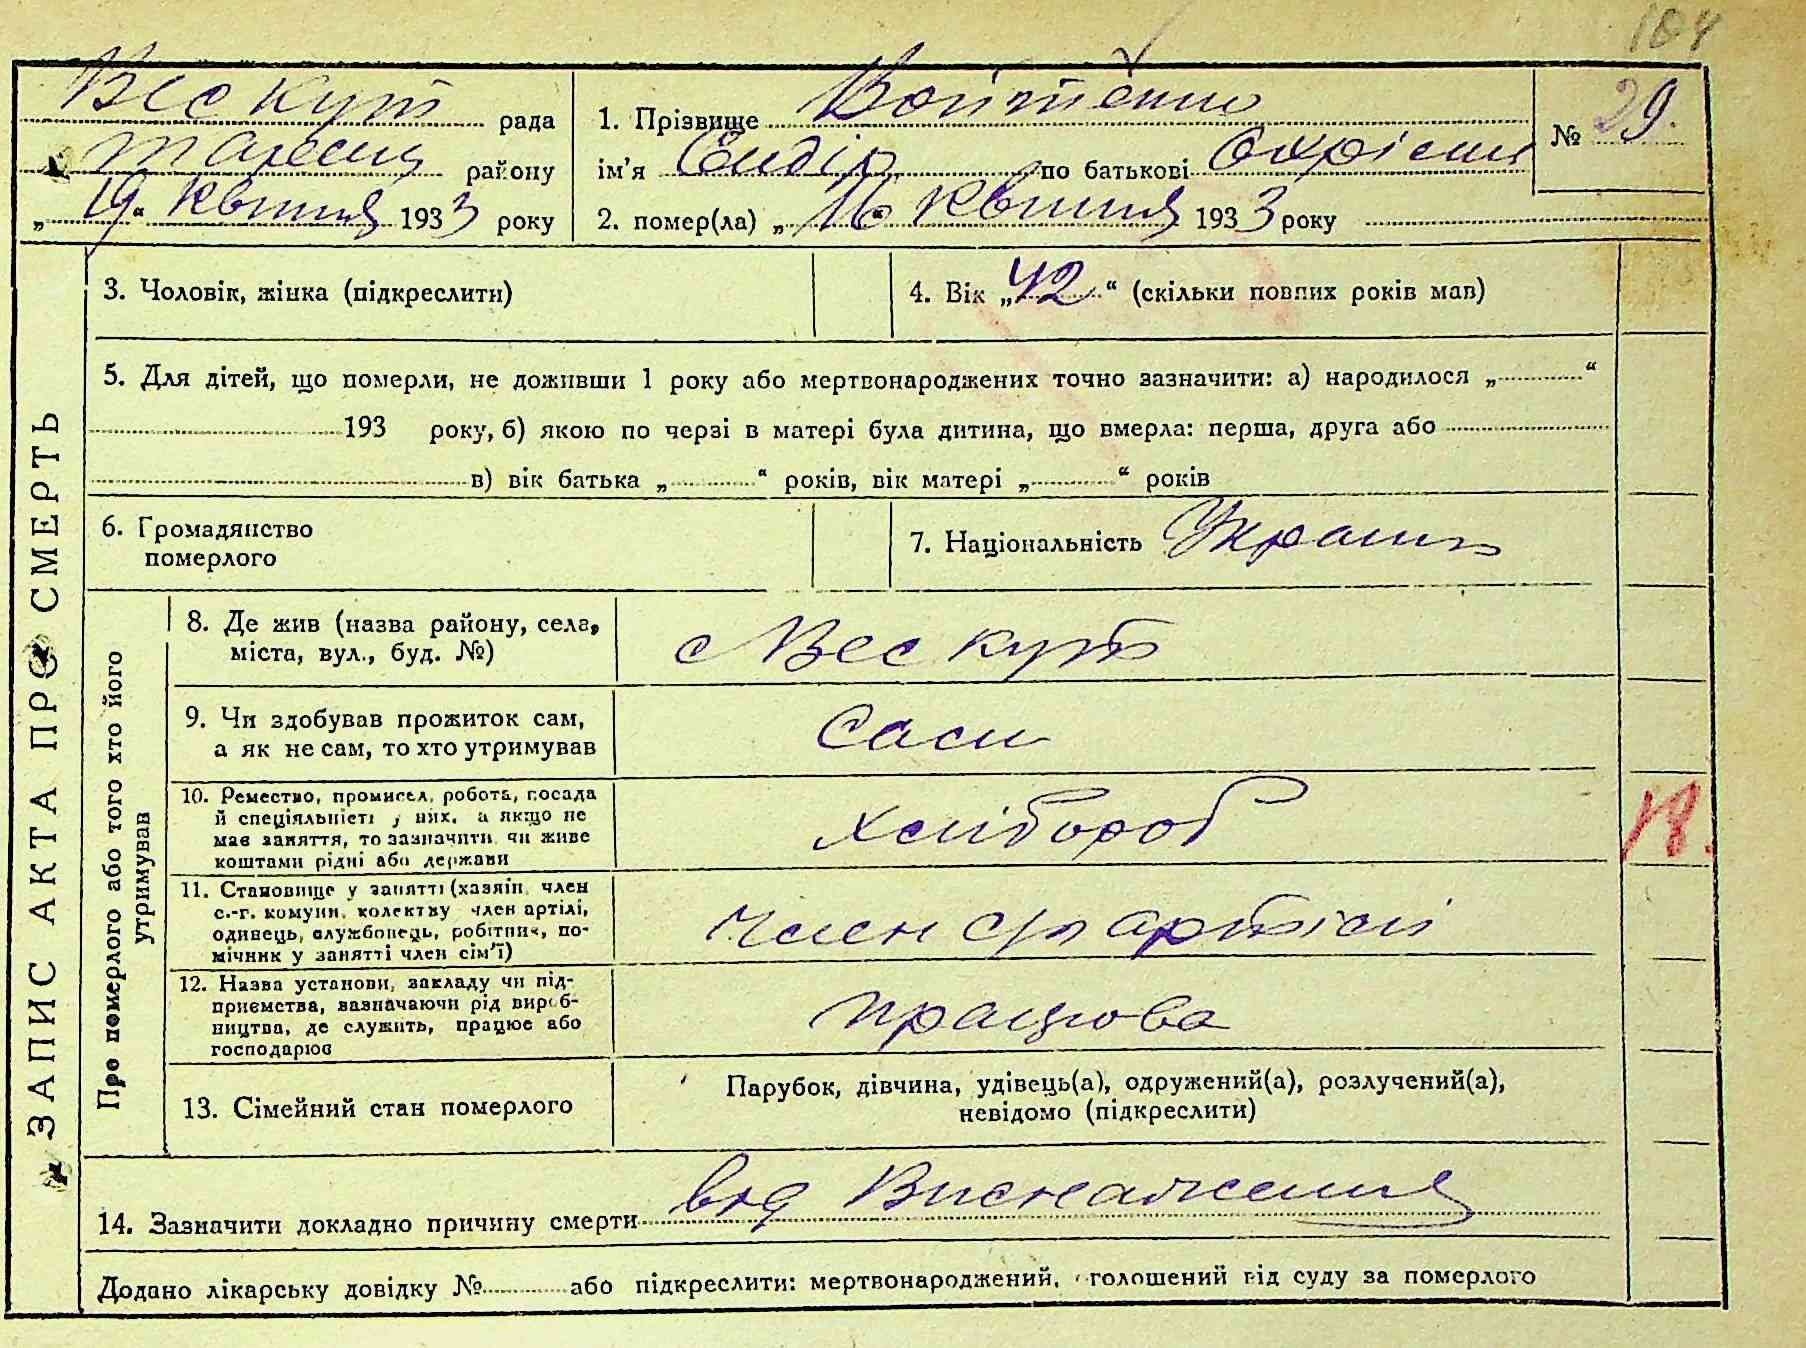 184
Вескут рада
району
„19“ Квітня 1933 року
1. Прізвище Войтенко
ім'я по батькові
2. помер(ла) „16“ Квітня 1933 року
№ 29.
3. Чоловік, жінка (підкреслити)
4. Вік „42“ (скільки повних років мав)
5. Для дітей, що померли, не доживши 1 року або мертвонароджених точно зазначити: а) народилося „ “
193 року, б) якою по черзі в матері була дитина, що вмерла: перша, друга або
в) вік батька „ “ років, вік матері „ “ років
6. Громадянство
померлого
7. Національність Украин
ЗАПИС АКТА ПРО СМЕРТЬ
Про померлого або того хто його
утримував
8. Де жив (назва району, села,
міста, вул., буд. №)
с Вескут
9. Чи здобував прожиток сам,
а як не сам, то хто утримував
Сам
10. Ремество, промисел, робота, посада
й спеціяльність у них, а якщо не
має заняття, то зазначити чи живе
коштами рідні або держави
хлібороб
11. Становище у занятті (хазяїн, член
с.-г. комуни, колективу член артілі,
одинець, службовець, робітник, по-
мічник у занятті член сім'ї)
член с/г артілі
12. Назва установи, закладу чи під-
приємства, зазначаючи рід вироб-
ництва, де служить, працює або
господарює
працюва
13. Сімейний стан померлого
Парубок, дівчина, удівець(а), одружений(а), розлучений(а),
невідомо (підкреслити)
14. Зазначити докладно причину смерти від Виснаження
Додано лікарську довідку № або підкреслити: мертвонароджений, оголошений від суду за померлого